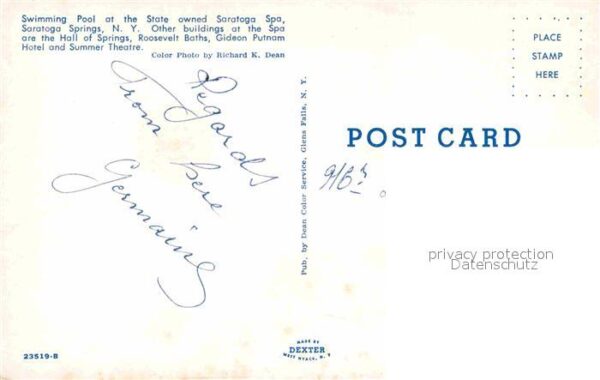 Swimming Pool at the State owned Saratoga Spa,
Saratoga Springs, N. Y. Other buildings at the Spa
are the Hall of Springs, Roosevelt Baths, Gideon Putnam
Hotel and Summer Theatre.
Color Photo by Richard K. Dean
Regards
from here
Germaine
23519-B
Pub. by Dean Color Service, Glens Falls, N. Y.
MADE BY
DEXTER
WEST NYACK, N. Y.
PLACE
STAMP
HERE
POST CARD
privacy protection
Datenschutz